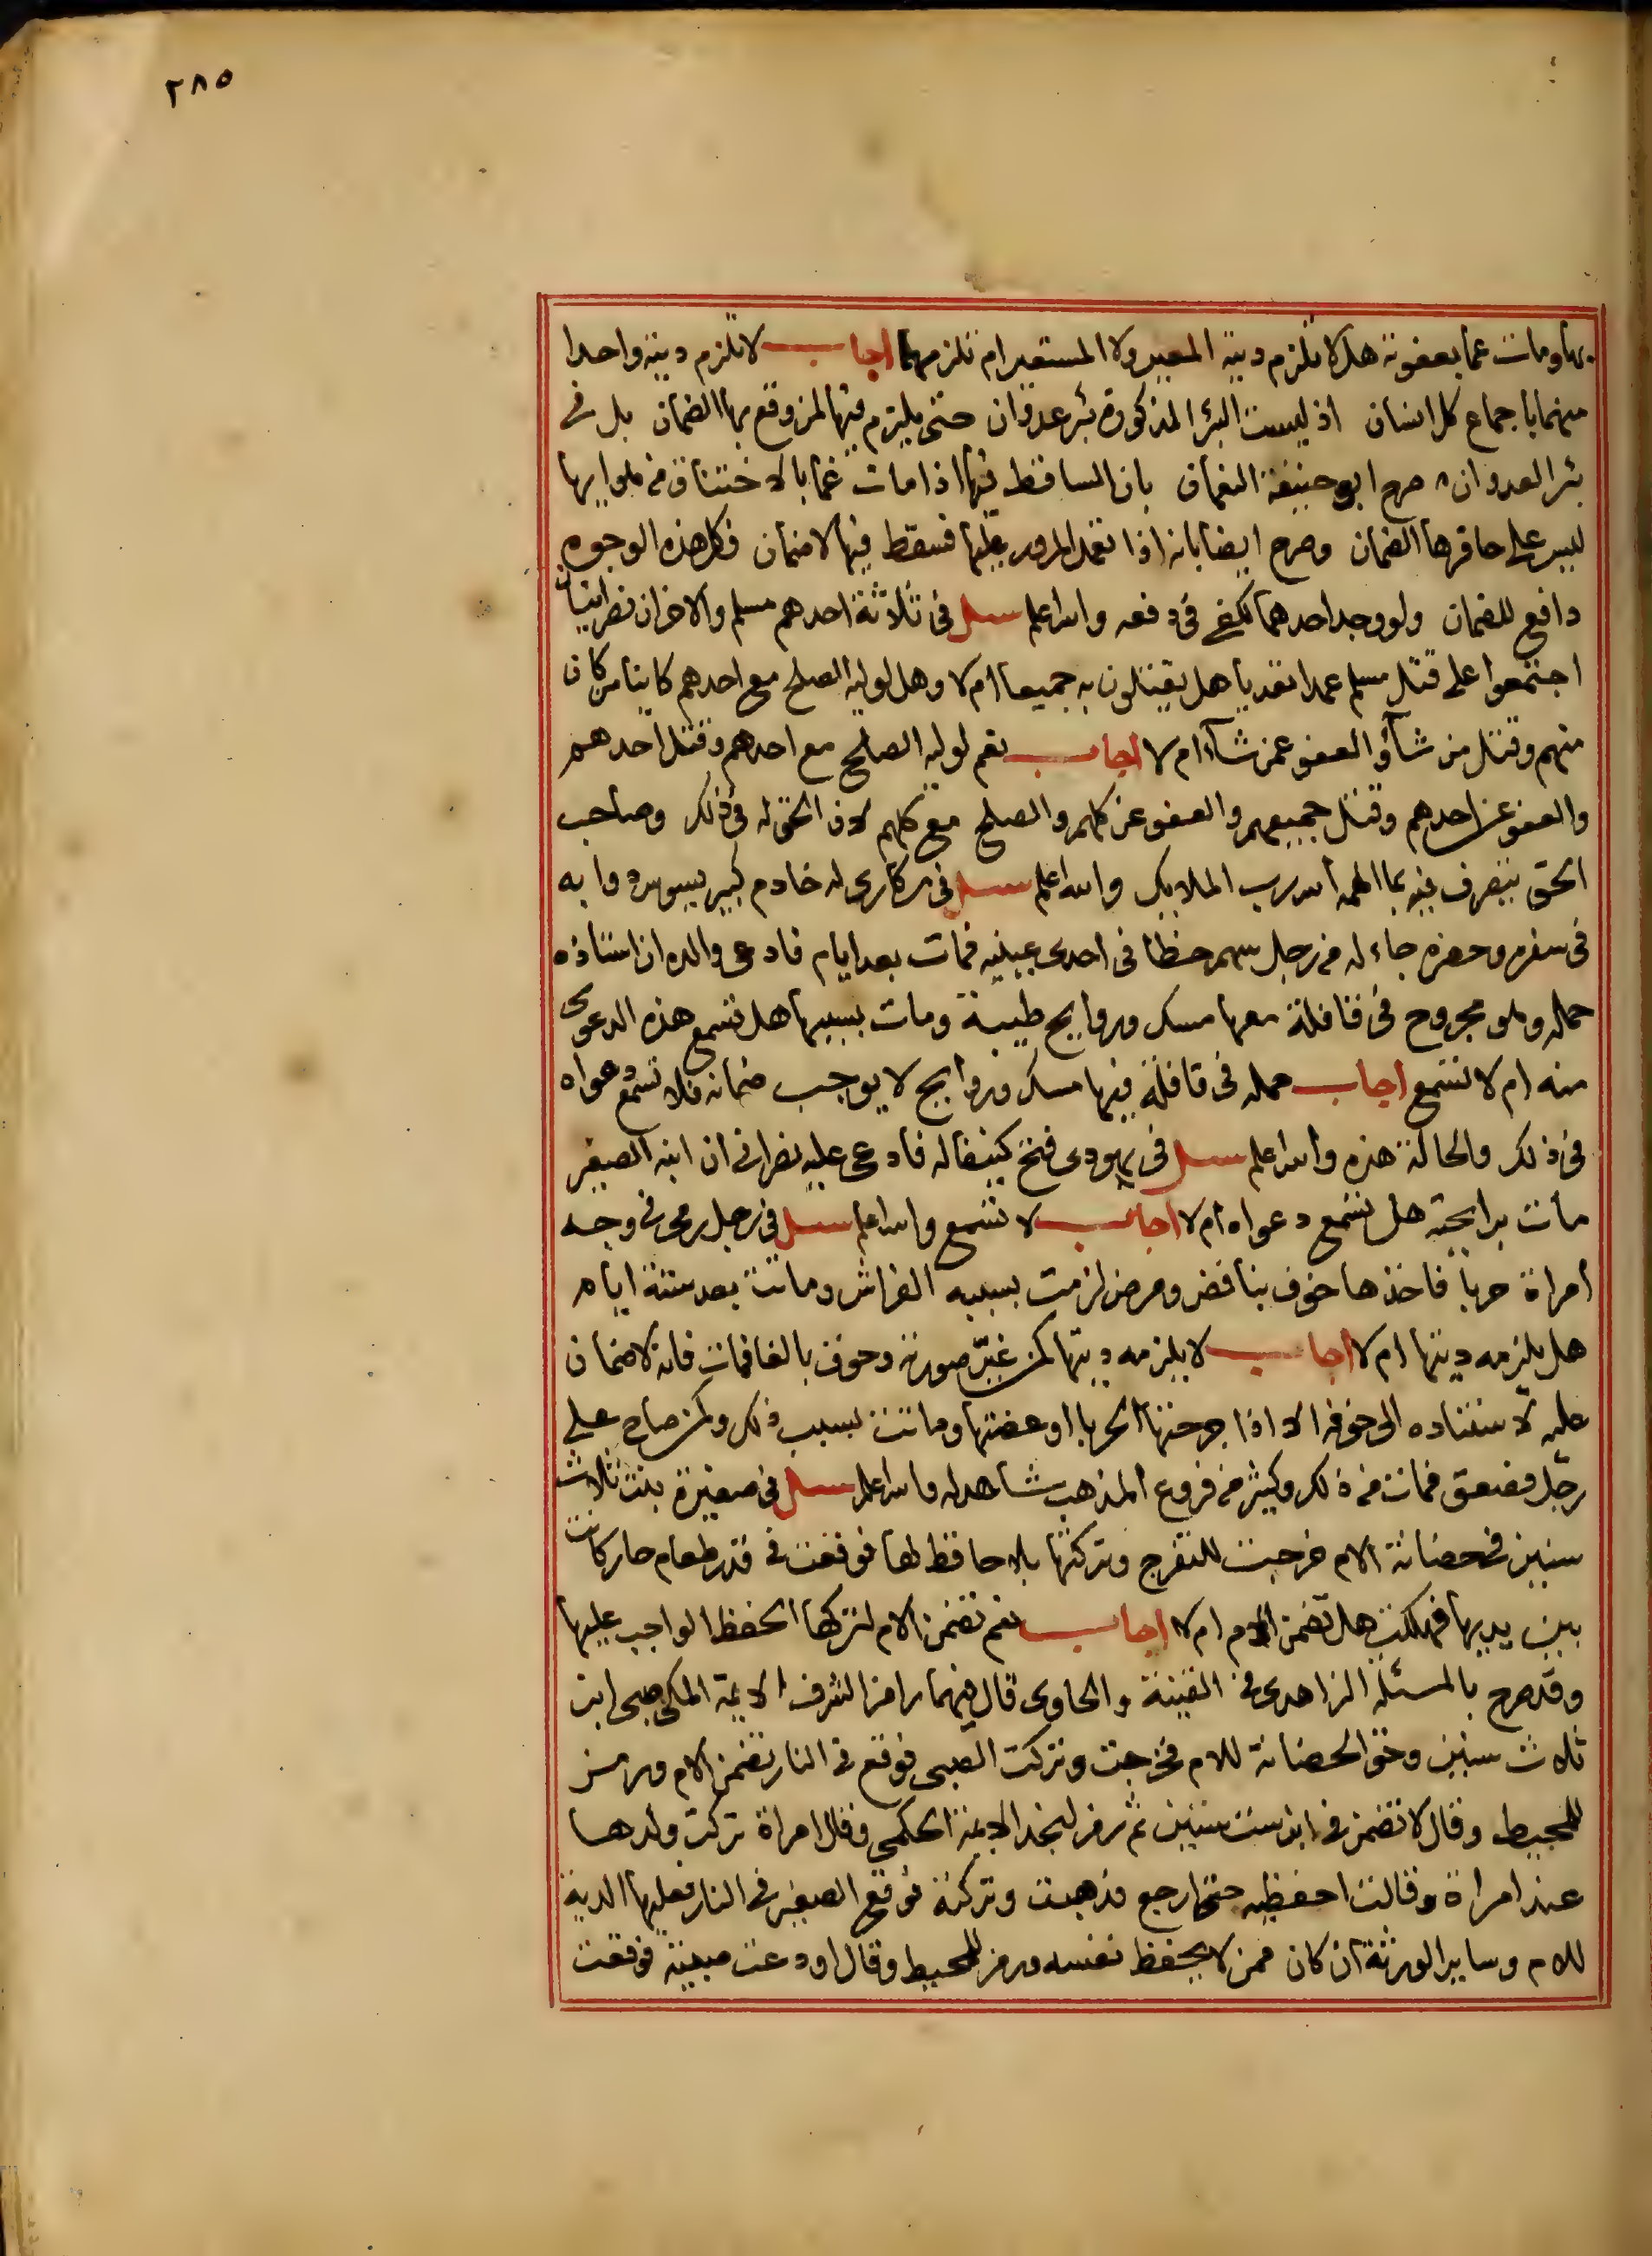 ٢٨٥
بها ومات غما بعفونة هل لا تلزم ديته المعير ولا المستعير ام تلزمهما اجاب لا تلزم ديته واحدا
منهما باجماع كل انسان اذ ليست البئر المذكورة بئر عدوان حتى يلتزم فيها لمن وقع بها الضمان بل في
بئر العدوان صرح ابو حنيفة النعمان بان الساقط فيها اذا مات غما بالاختناق من هوايها
ليس على حافرها الضمان وصرح ايضا بانه اذا تعمد المرور عليها فسقط فيها لا ضمان فكل هذه الوجوه
دافع للضمان ولو وجد احدهما لكفى في دفعه والله اعلم سئل في ثلاثة احدهم مسلم والاخران نصرانيان
اجتمعوا على قتل مسلم عمدا تعديا هل يقتلون به جميعا ام لا وهل لوليه الصلح مع احدهم كاينا من كان
منهم وقتل من شآء والعفو عمن شآء ام لا اجاب نعم لوليه الصلح مع احدهم وقتل احدهم
والعفو عن احدهم وقتل جميعهم والعفو عن كلهم والصلح مع كلهم لان الحق له في ذلك وصاحب
الحق يتصرف فيه بما الهمه الله رب الملايك والله اعلم سئل في مكاري له خادم كبير يسوس دوابه
في سفره وحضره جاء له من رجل سهم خطا في احدى عينيه فمات بعد ايام فادعى والده ان استاذه
حمله وهو مجروح في قافلة معها مسك وروايح طيبة ومات بسببها هل تسمع هذه الدعوى
منه ام لا تسمع اجاب حمله في قافلة فيها مسك وروايح لا يوجب ضمانه فلا تسمع دعواه
في ذلك والحالة هذه والله اعلم سئل في يهودى فتح كنيفا له فادعى عليه نصراني ان ابنه الصغير
مات برايحته هل تسمع دعواه ام لا اجاب لا تسمع والله اعلم سئل في رجل رمى في وجه
امراة حربا فاخذها خوف بنافض ومرض لزمت بسببه الفراش وماتت بعد ستة ايام
هل يلزمه ديتها ام لا اجاب لا يلزمه ديتها كمن غير صورته وخوف بالغا فمات فانه لا ضمان
عليه لاستناده الى خوفه الا اذا جرحتها الحربا او عضتها وماتت بسبب ذلك وكمن صاح على
رجل فصعق فمات من ذلك وكثير من فروع المذهب شاهد له والله اعلم سئل في صغيرة بنت ثلاث
سنين في حضانة الام خرجت للتفرج وتركتها بلا حافظ لها فوقعت في قدر طعام حار كانت
بين يديها فهلكت هل تضمن الام ام لا اجاب نعم تضمن الام لتركها الحفظ الواجب عليها
وقد صرح بالمسئلة الزاهدى في القنية والحاوى قال فيهما رامزا لشرف الايمة المكي صبى ابن
ثلاث سنين وحق الحضانة للام فخرجت وتركت الصبى فوقع في النار تضمن الام ورمز
للمحيط وقال لا تضمن في ابن ست سنين ثم رمز لنجد الايمة الحكمى وقال امراة تركت ولدها
عند امراة وقالت احفظيه حتى ارجع فذهبت وتركته فوقع الصغير في النار فعليها الدية
للام وساير الورثة ان كان ممن لا يحفظ نفسه ورمز للمحيط وقال اودعت صبية فوقعت